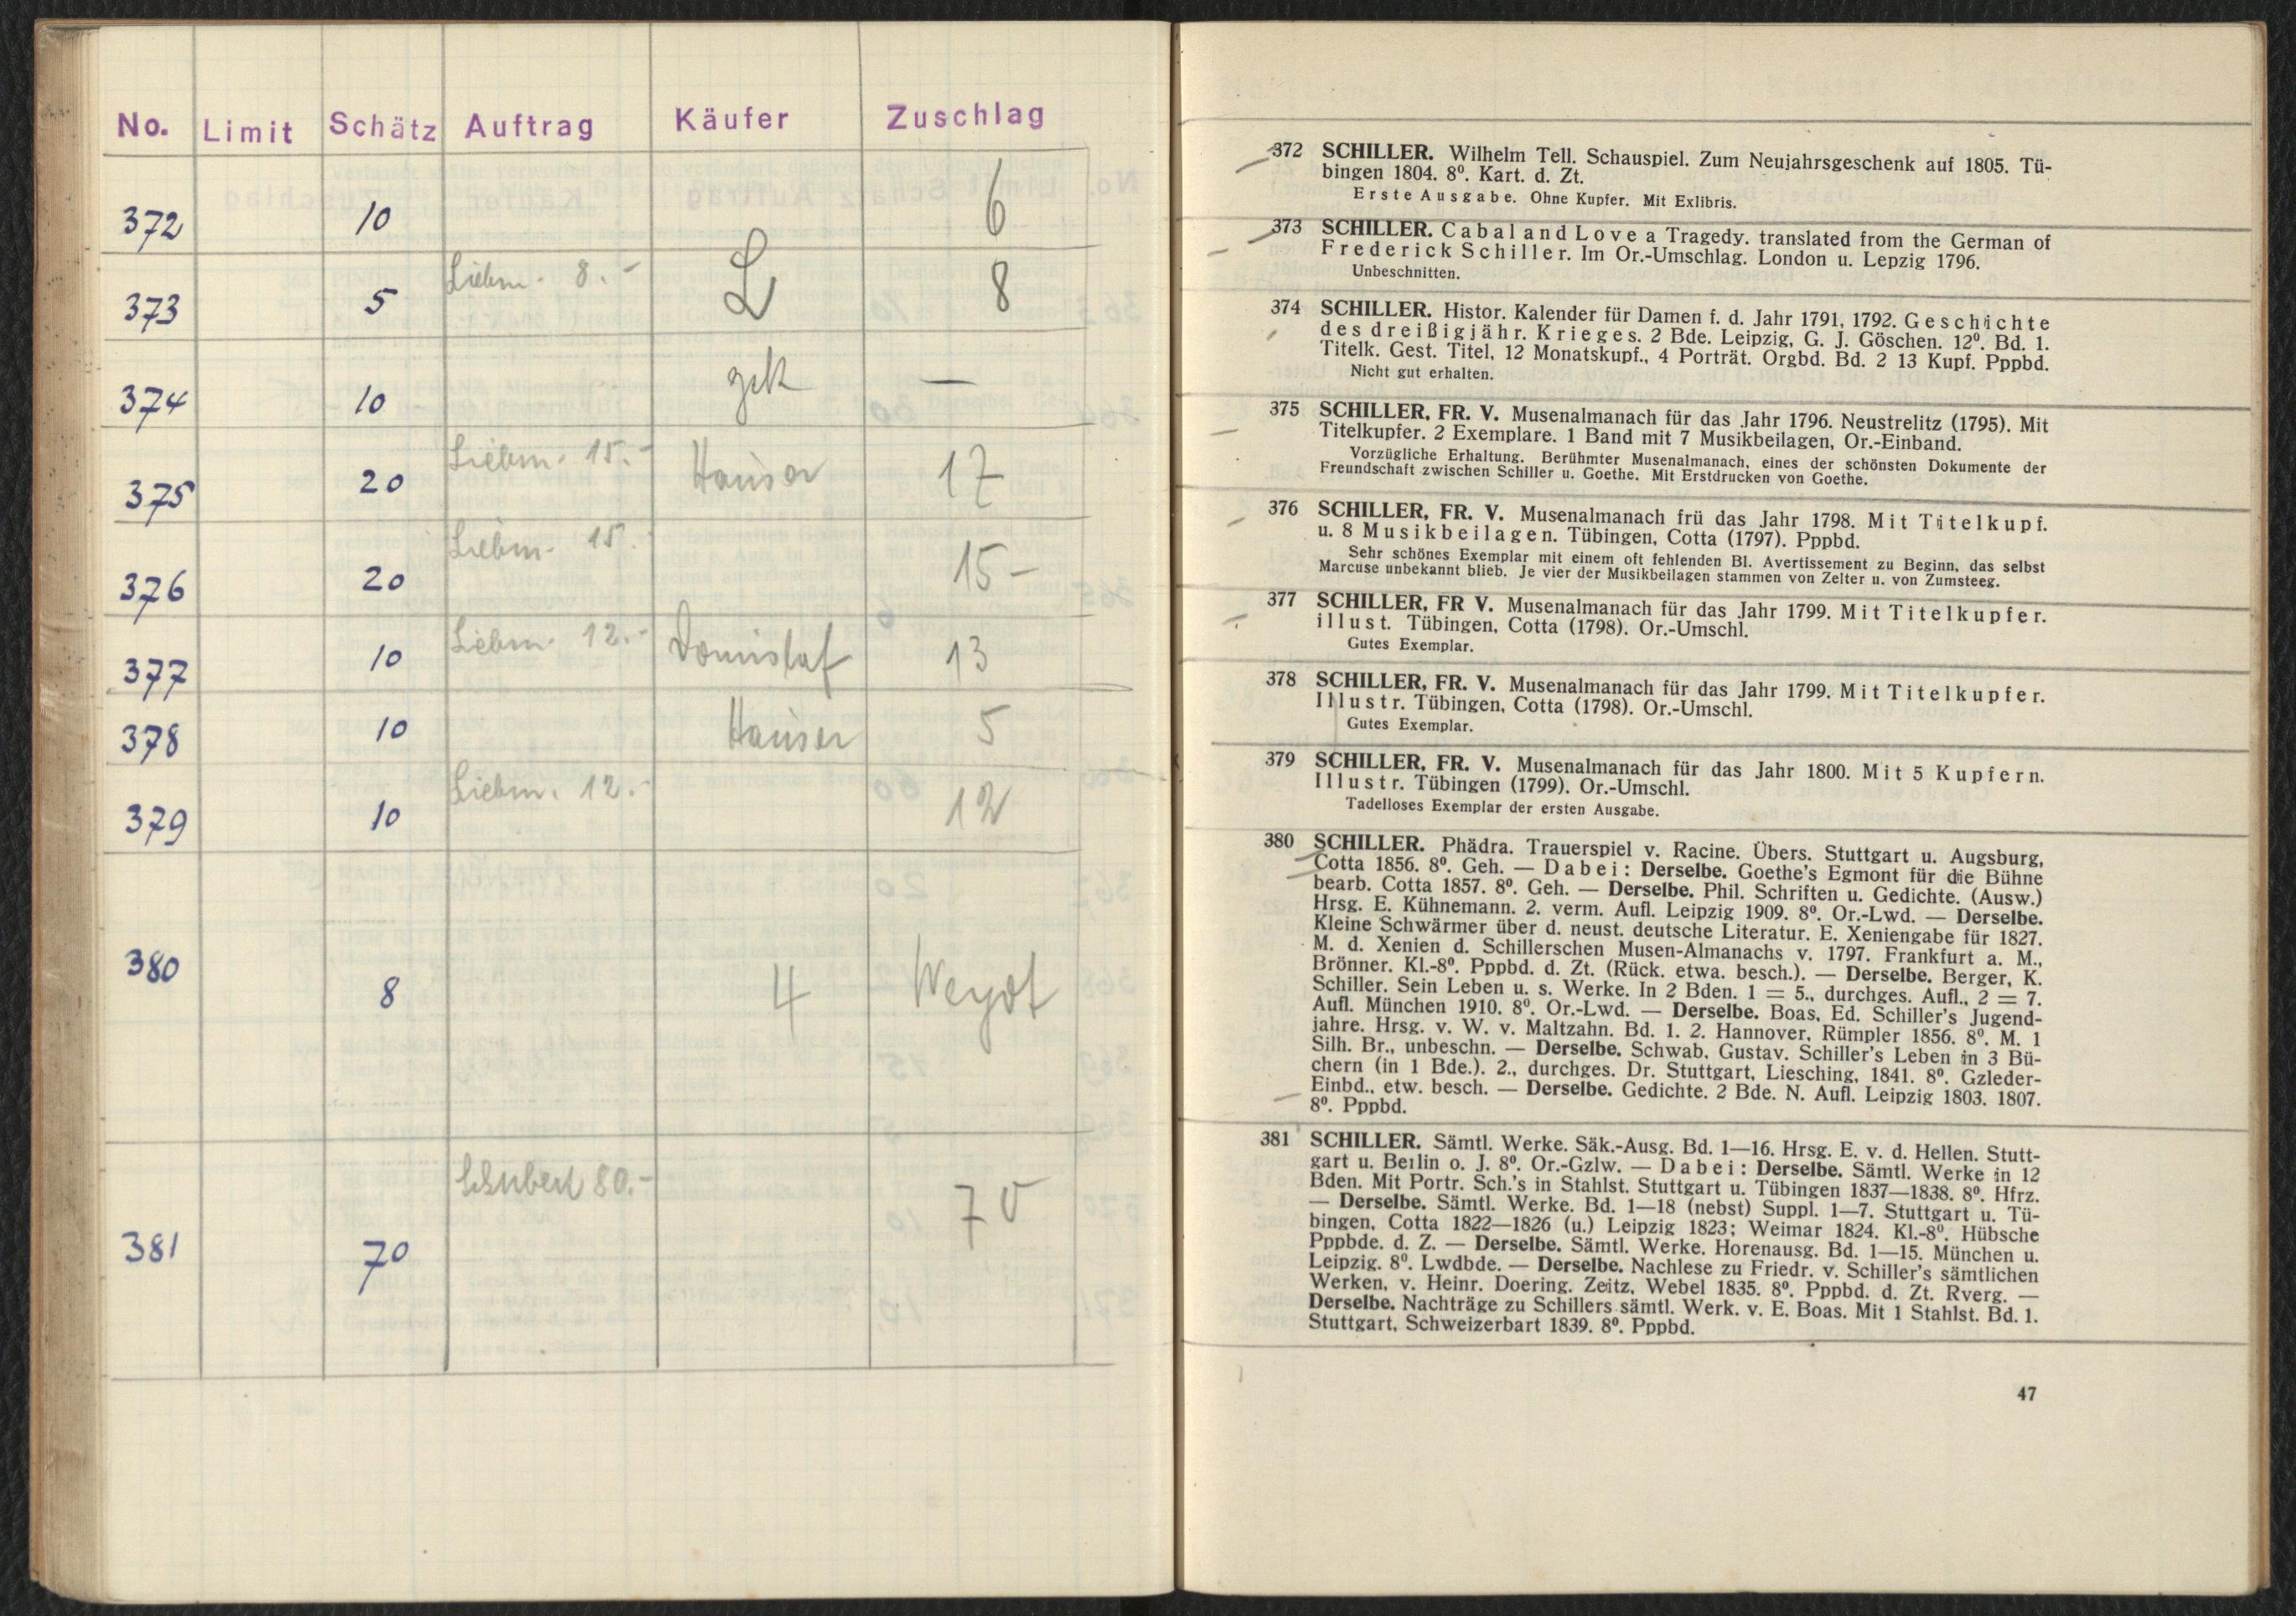 No. Limit Schätz Auftrag Käufer Zuschlag
372 10 6
373 5 Liebm. 8.- L 8
374 10 zck —
375 20 Liebm. 15.- Hauser 17
376 20 Liebm. 15. 15-
377 10 Liebm. 12.- 13
378 10 Hauser 5
379 10 Liebm. 12.- 12
380 8 4 Weydt
381 70 Schubert 80.- 70
372 SCHILLER. Wilhelm Tell. Schauspiel. Zum Neujahrsgeschenk auf 1805. Tü-
bingen 1804. 8⁰. Kart. d. Zt.
Erste Ausgabe. Ohne Kupfer. Mit Exlibris.
373 SCHILLER. Cabal and Love a Tragedy. translated from the German of
Frederick Schiller. Im Or.-Umschlag. London u. Lepzig 1796.
Unbeschnitten.
374 SCHILLER. Histor. Kalender für Damen f. d. Jahr 1791, 1792. Geschichte
des dreißigjähr. Krieges. 2 Bde. Leipzig, G. J. Göschen. 12⁰. Bd. 1.
Titelk. Gest. Titel, 12 Monatskupf., 4 Porträt. Orgbd. Bd. 2 13 Kupf. Pppbd.
Nicht gut erhalten.
375 SCHILLER, FR. V. Musenalmanach für das Jahr 1796. Neustrelitz (1795). Mit
Titelkupfer. 2 Exemplare. 1 Band mit 7 Musikbeilagen, Or.-Einband.
Vorzügliche Erhaltung. Berühmter Musenalmanach, eines der schönsten Dokumente der
Freundschaft zwischen Schiller u. Goethe. Mit Erstdrucken von Goethe.
376 SCHILLER, FR. V. Musenalmanach frü das Jahr 1798. Mit Titelkupf.
u. 8 Musikbeilagen. Tübingen, Cotta (1797). Pppbd.
Sehr schönes Exemplar mit einem oft fehlenden Bl. Avertissement zu Beginn, das selbst
Marcuse unbekannt blieb. Je vier der Musikbeilagen stammen von Zelter u. von Zumsteeg.
377 SCHILLER, FR V. Musenalmanach für das Jahr 1799. Mit Titelkupfer.
illust. Tübingen, Cotta (1798). Or.-Umschl.
Gutes Exemplar.
378 SCHILLER, FR. V. Musenalmanach für das Jahr 1799. Mit Titelkupfer.
Illustr. Tübingen, Cotta (1798). Or.-Umschl.
Gutes Exemplar.
379 SCHILLER, FR. V. Musenalmanach für das Jahr 1800. Mit 5 Kupfern.
Illustr. Tübingen (1799). Or.-Umschl.
Tadelloses Exemplar der ersten Ausgabe.
380 SCHILLER. Phädra. Trauerspiel v. Racine. Übers. Stuttgart u. Augsburg,
Cotta 1856. 8⁰. Geh. — Dabei: Derselbe. Goethe's Egmont für die Bühne
bearb. Cotta 1857. 8⁰. Geh. — Derselbe. Phil. Schriften u. Gedichte. (Ausw.)
Hrsg. E. Kühnemann. 2. verm. Aufl. Leipzig 1909. 8⁰. Or.-Lwd. — Derselbe.
Kleine Schwärmer über d. neust. deutsche Literatur. E. Xeniengabe für 1827.
M. d. Xenien d. Schillerschen Musen-Almanachs v. 1797. Frankfurt a. M.,
Brönner. Kl.-8⁰. Pppbd. d. Zt. (Rück. etwa. besch.). — Derselbe. Berger, K.
Schiller. Sein Leben u. s. Werke. In 2 Bden. 1 = 5., durchges. Aufl., 2 = 7.
Aufl. München 1910. 8⁰. Or.-Lwd. — Derselbe. Boas, Ed. Schiller's Jugend-
jahre. Hrsg. v. W. v. Maltzahn. Bd. 1. 2. Hannover, Rümpler 1856. 8⁰. M. 1
Silh. Br., unbeschn. — Derselbe. Schwab, Gustav. Schiller's Leben in 3 Bü-
chern (in 1 Bde.). 2., durchges. Dr. Stuttgart, Liesching, 1841. 8⁰. Gzleder-
Einbd., etw. besch. — Derselbe. Gedichte. 2 Bde. N. Aufl. Leipzig 1803. 1807.
8⁰. Pppbd.
381 SCHILLER. Sämtl. Werke. Säk.-Ausg. Bd. 1—16. Hrsg. E. v. d. Hellen. Stutt-
gart u. Berlin o. J. 8⁰. Or.-Gzlw. — Dabei: Derselbe. Sämtl. Werke in 12
Bden. Mit Portr. Sch.'s in Stahlst. Stuttgart u. Tübingen 1837—1838. 8⁰. Hfrz.
— Derselbe. Sämtl. Werke. Bd. 1—18 (nebst) Suppl. 1—7. Stuttgart u. Tü-
bingen, Cotta 1822—1826 (u.) Leipzig 1823; Weimar 1824. Kl.-8⁰. Hübsche
Pppbde. d. Z. — Derselbe. Sämtl. Werke. Horenausg. Bd. 1—15. München u.
Leipzig. 8⁰. Lwdbde. — Derselbe. Nachlese zu Friedr. v. Schiller's sämtlichen
Werken, v. Heinr. Doering. Zeitz, Webel 1835. 8⁰. Pppbd. d. Zt. Rverg. —
Derselbe. Nachträge zu Schillers sämtl. Werk. v. E. Boas. Mit 1 Stahlst. Bd. 1.
Stuttgart, Schweizerbart 1839. 8⁰. Pppbd.
47